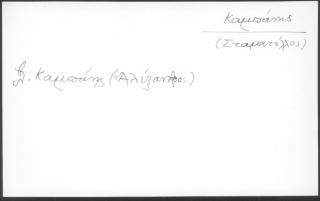 Καμπάνης
(Σταματέλλος)
Βλ. Καμπάνης (Ἀλέξανδρος)